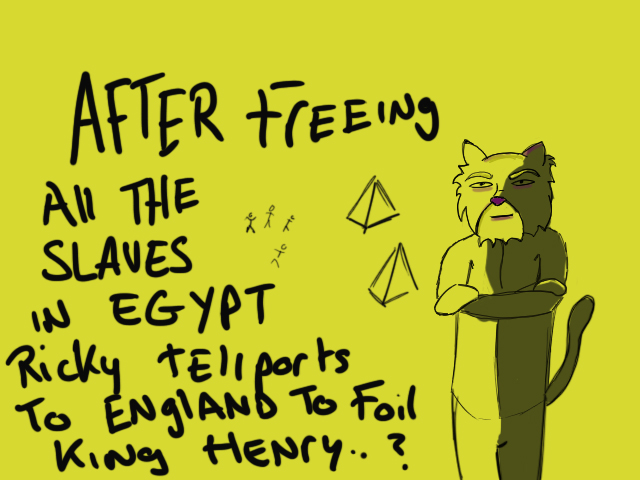 AFTER frEEING
All THE
SLAVES
IN EGYPT
Ricky tEllports
To ENglAND To Foil
KING HENry..?